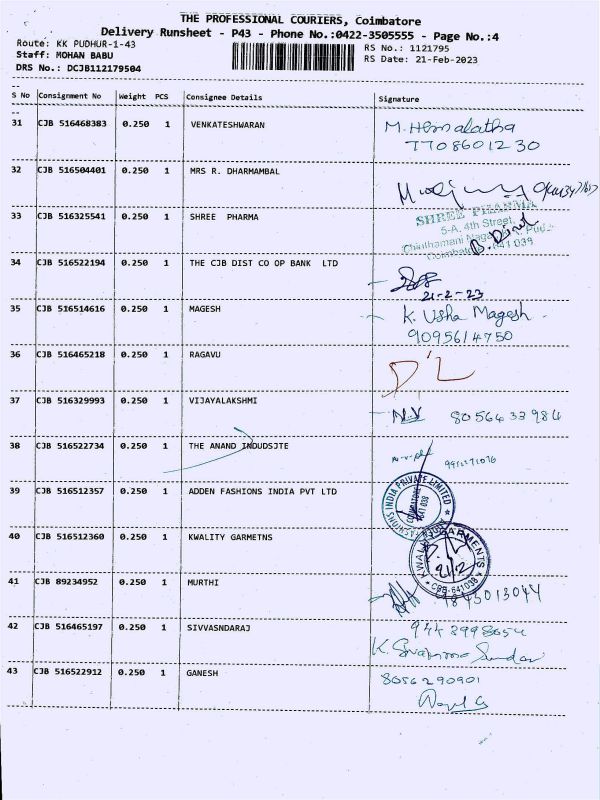 THE PROFESSIONAL COURIERS, Coimbatore
Delivery Runsheet - P43 - Phone No.:0422-3505555 - Page No.:4
Route: KK PUDHUR-1-43
RS No.: 1121795
Staff: MOHAN BABU
RS Date: 21-Feb-2023
DRS No.: DCJB112179504
S No Consignment No Weight PCS Consignee Details Signature
31 CJB 516468383 0.250 1 VENKATESHWARAN M. Hemalatha
7708601230
32 CJB 516504401 0.250 1 MRS R. DHARMAMBAL
33 CJB 516325541 0.250 1 SHREE PHARMA SHREE PHARMA
5-A, 4th Street,
Chinthamani Nagar, K.K. Pudur
Coimbatore - 641 039
34 CJB 516522194 0.250 1 THE CJB DIST CO OP BANK LTD
21-2-23
35 CJB 516514616 0.250 1 MAGESH K. Usha Magesh
9095614750
36 CJB 516465218 0.250 1 RAGAVU
37 CJB 516329993 0.250 1 VIJAYALAKSHMI N.V 8056433984
38 CJB 516522734 0.250 1 THE ANAND INDUDSJTE
39 CJB 516512357 0.250 1 ADDEN FASHIONS INDIA PVT LTD FASHIONS INDIA PRIVATE LIMITED
COIMBATORE
641 038
40 CJB 516512360 0.250 1 KWALITY GARMETNS KWALITY GARMENTS
21/2
CBB-641038
41 CJB 89234952 0.250 1 MURTHI 9843013044
42 CJB 516465197 0.250 1 SIVVASNDARAJ 9443998654
K. Sivasamy Sundar
43 CJB 516522912 0.250 1 GANESH 8056290901